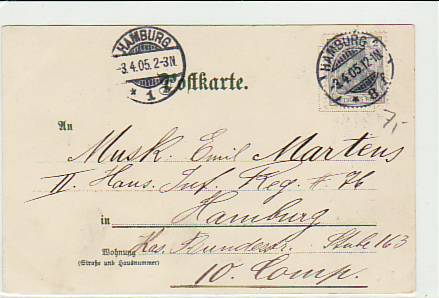 HAMBURG
-3.4.05. 2-3N.
* 1 i
HAMBURG
-3.4.05. 12-1N.
* 8 f
Postkarte.
7,-
An
Musk. Emil Martens
II Hans. Inf. Reg. # 76
in Hamburg
Wohnung
(Straße und Hausnummer)
Kas. Bundesstr. Stube 163
10. Comp.